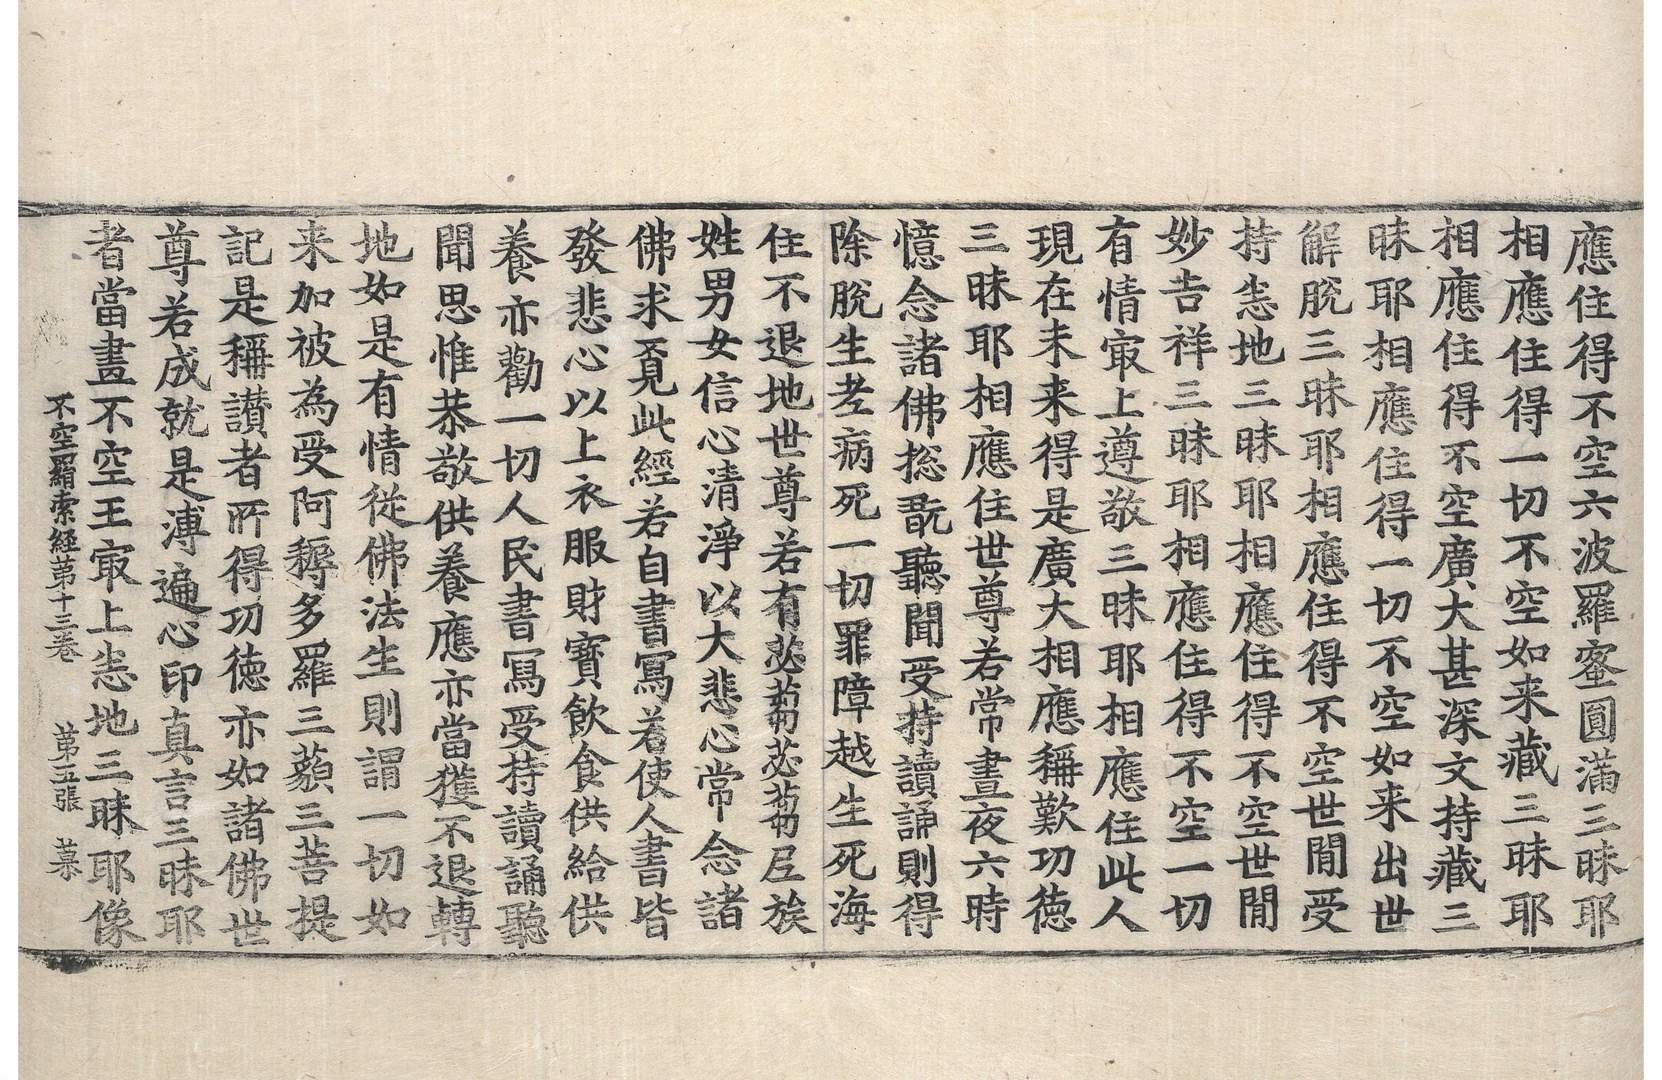 應住得不空六波羅蜜圓滿三昧耶
相應住得一切不空如来藏三昧耶
相應住得不空廣大甚深文持藏三
昧耶相應住得一切不空如来出世
解脫三昧耶相應住得不空世閒受
持悉地三昧耶相應住得不空世閒
妙吉祥三昧耶相應住得不空一切
有情㝡上遵敬三昧耶相應住此人
現在未来得是廣大相應稱歎功德
三昧耶相應住世尊若常晝夜六時
憶念諸佛捴翫聽聞受持讀誦則得
除脫生老病死一切罪障越生死海
住不退地世尊若有苾蒭苾蒭尼族
姓男女信心清淨以大悲心常念諸
佛求覓此經若自書冩若使人書皆
發悲心以上衣服財寶飲食供給供
養亦勸一切人民書冩受持讀誦聽
聞思惟恭敬供養應亦當獲不退轉
地如是有情從佛法生則謂一切如
来加被為受阿耨多羅三藐三菩提
記是稱讃者所得功德亦如諸佛世
尊若成就是溥遍心印真言三昧耶
者當畫不空王㝡上悉地三昧耶像
不空羂索經苐十三卷　苐五張　慕